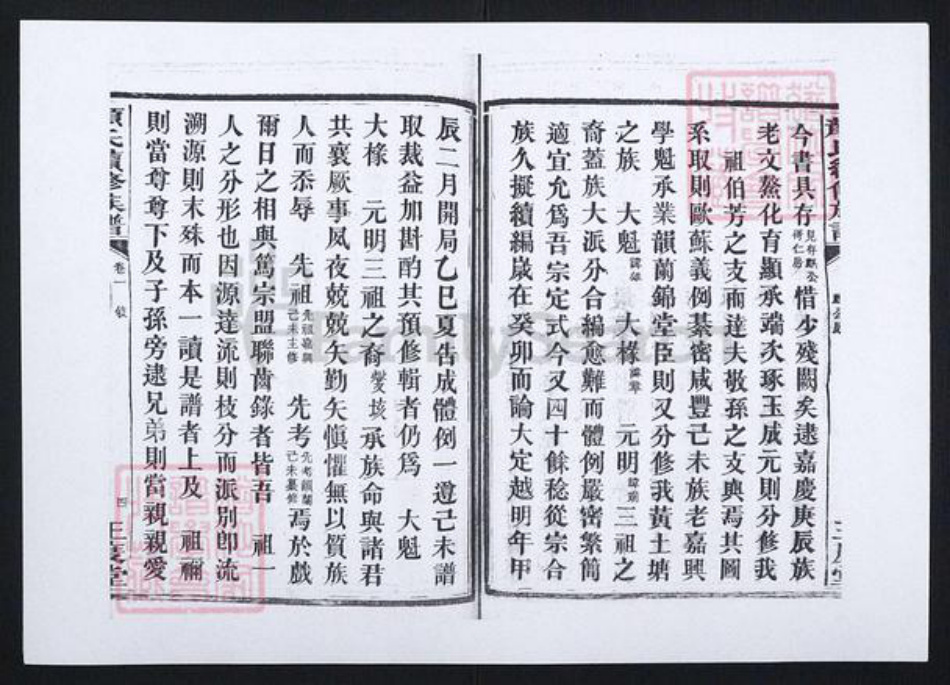 今書具存惜少殘闕矣逮嘉慶庚辰族
老文鰲化育顯承端次琢玉成元則分修我
祖伯芳之支而達夫敬孫之支與焉其圖
系取則歐蘇義例綦密咸豐己未族老嘉興
學魁承業韻蘭錦堂臣則又分修我黃土塘
之族 大魁 大椽 元明 三祖之
裔蓋族大派分合編愈難而體例嚴密繁簡
適宜允爲吾宗定式今又四十餘稔從宗合
族久擬續編歲在癸卯而論大定越明年甲
辰二月開局乙巳夏告成體例一遵己未譜
取裁益加斟酌其預修輯者仍爲 大魁
大椽 元明三祖之裔 承族命與諸君
共襄厥事夙夜兢兢矢勤矢愼懼無以質族
人而忝辱 先祖 己未主修 先考 己未纂修 焉於戲
爾日之相與篤宗盟聯齒錄者皆吾 祖一
人之分形也因源達流則枝分而派別卽流
溯源則末殊而本一讀是譜者上及 祖禰
則當尊尊下及子孫旁逮兄弟則當親親愛
氏續修族譜
卷一
四
三慶堂